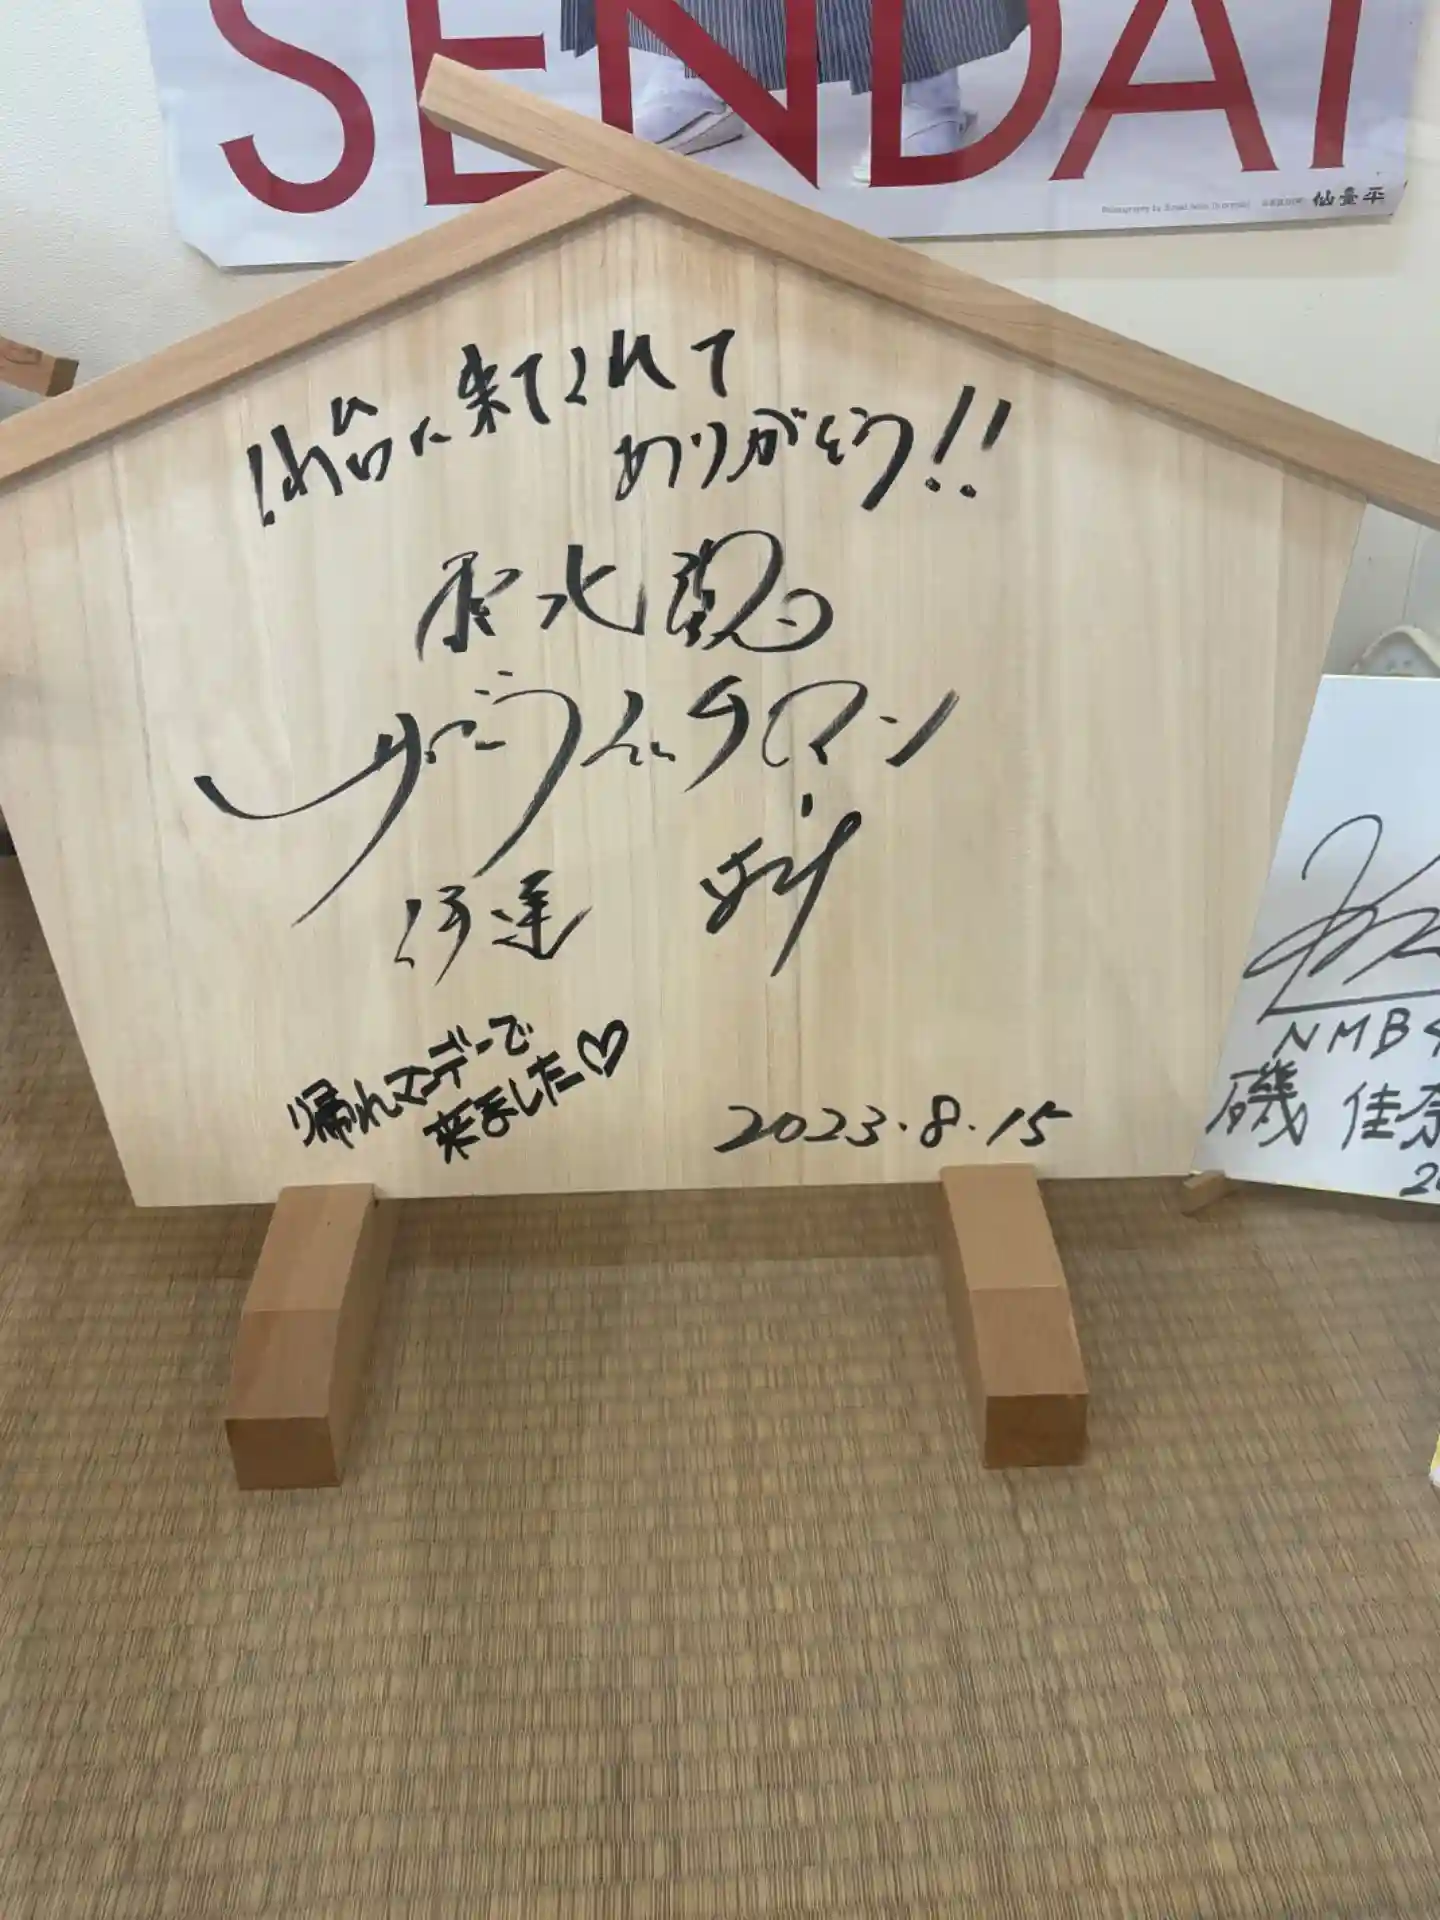 SENDAI
仙臺平
仙台に来てくれて
ありがとう!!
東北魂
サンドウィッチマン
伊達
帰れマンデーで
来ました♡
2023.8.15
NMB4
磯 佳奈